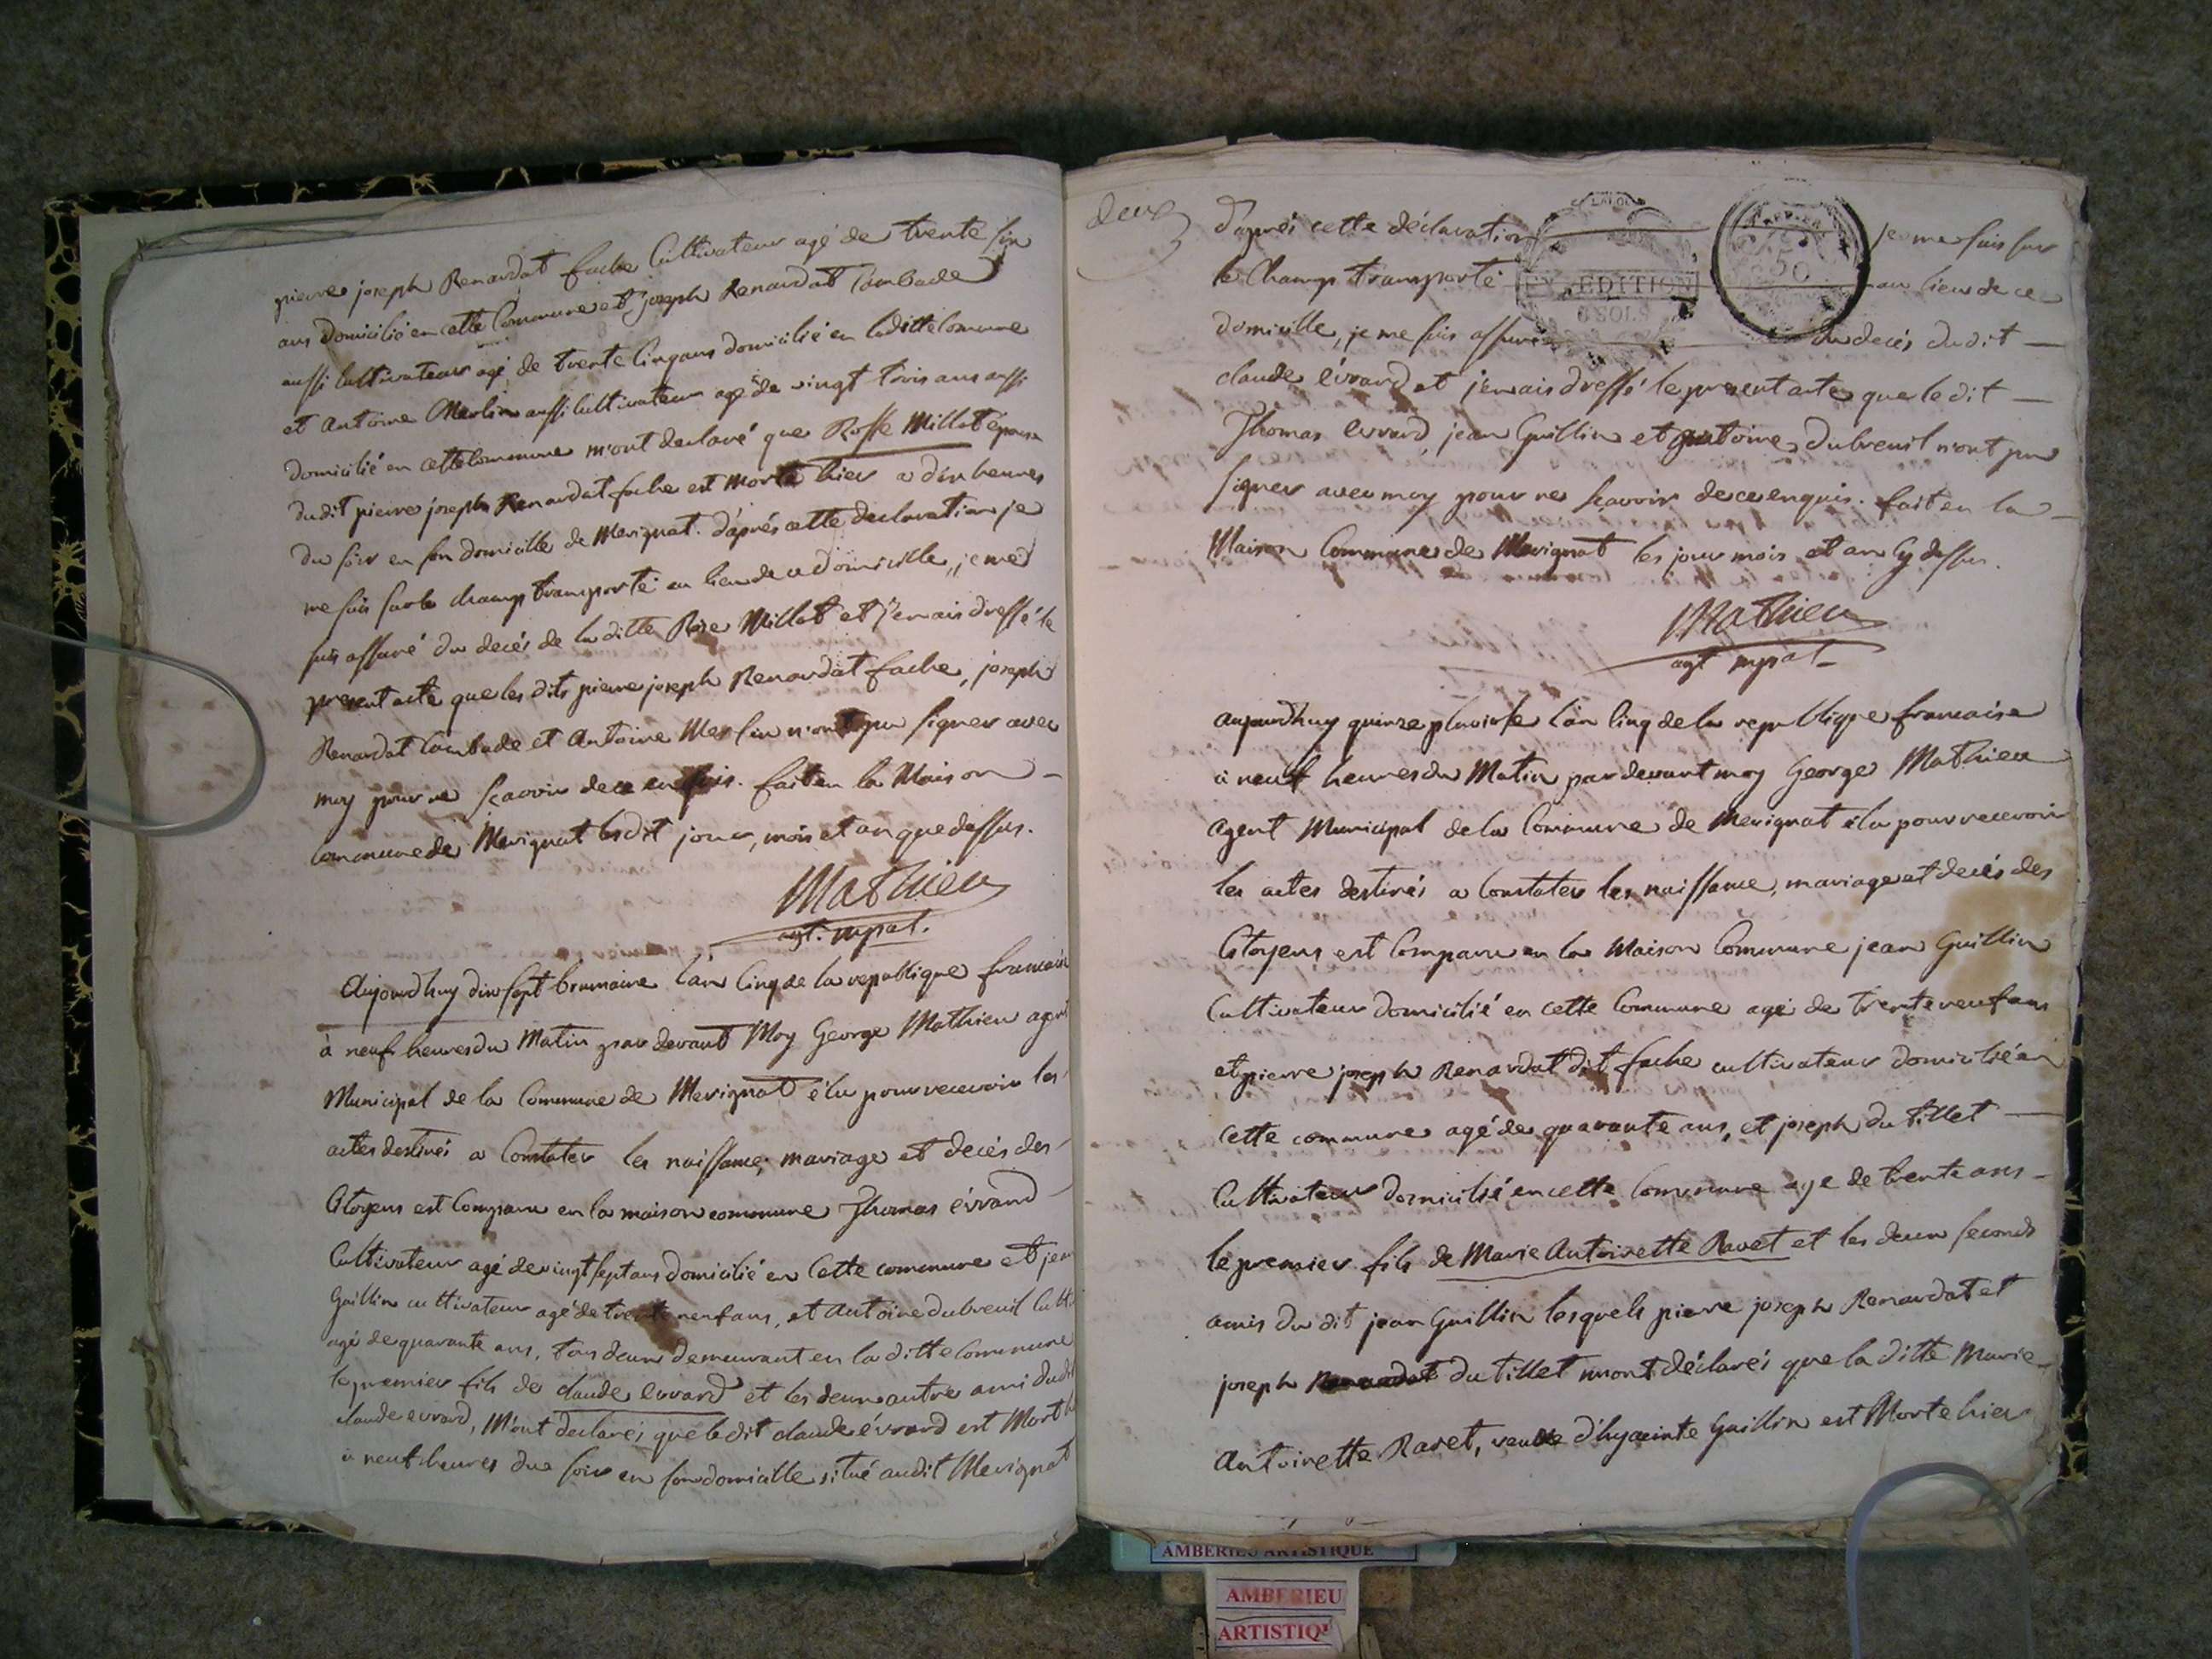 pierre joseph Renardat fache Cultivateur agé de trente six
ans domicilié en cette Commune et joseph Renardat Combade
aussi Cultivateur agé de trente Cinq ans domicilié en laditte Comune
et Antoine Merlin aussi Cultivateur agé de vingt trois ans aussi
domicilié en cette Commune m'ont declaré que Rosse Millet épouse
dudit pierre joseph Renardat fache est morte hier a dix heures
du soir en son domicille de Merignat. d'après cette declaration je
me suis sur le champ transporté au lieu de ce domicille, je me
suis assuré du decés de la ditte Rose Millet et j'en ais dressé le
present acte que les dits pierre joseph Renardat fache, joseph
Renardat Combade et Antoine Merlin n'ont pu signer avec
moy pour ne scavoir de ce enquis. fait en la Maison
Commune de Merignat lesdit jour, mois et an que dessus.
Mathieu
agt. mpal.
Aujourdhuy dix sept brumaire l'an Cinq de la republique francaise
à neuf heures du Matin par devant Moy George Mathieu agent
Municipal de la Commune de Merignat élu pour recevoir les
actes destinés a Constater les naissance, mariage et decés des
Citoyens est Comparu en la maison commune Thomas évrard
Cultivateur agé de vingt sept ans domicilié en Cette commune et jean
Guillin cultivateur agé de trente neuf ans, et Antoine dubreuil Culti
agé de quarante ans, tous deux demeurant en la ditte Commune
le premier fils de claude evrard et les deux autre ami dudit
claude evrard, M'ont declarés que le dit claude évrard est Mort h
à neuf heures du soir en son domicille situé audit Merignat
deux
D'après cette déclaration je me suis sur
le Champ transporté au lieu de ce
EXPEDITION
domicille, je me suis assuré du decés dudit
claude évrard et j'en ais dressé le present acte que le dit
Thomas evrard, jean Guillin et Antoine dubreuil n'ont pu
signer avec moy pour ne scavoir de ce enquis. fait en la
Maison Commune de Merignat les jour mois et an Cy dessus.
Mathieu
agt mpal
aujourdhuy quinze pluviose l'an Cinq de la republique francaise
à neuf heures du Matin par devant moy George Mathieu
agent Municipal de la Commune de Merignat élu pour recevoir
les actes destinés a Constater les naissance, mariage et decés des
Citoyens est Comparu en la Maison Commune jean Guillin
Cultivateur domicilié en cette Commune agé de trente neuf ans
et pierre joseph Renardat dit fache cultivateur domicilié en
Cette commune agé de quarante ans, et joseph du tillet
Cultivateur domicilié en cette Commune age de trente ans
le premier fils de Marie Antoinette Ravet et les deux seconds
amis du dit jean Guillin lesquels pierre joseph Renardat et
joseph du tillet m'ont déclarés que la ditte Marie
Antoinette Ravet, veuve d'hyacinte Guillin est Morte hier
AMBERIEU ARTISTIQUE
AMBERIEU
ARTISTIQU